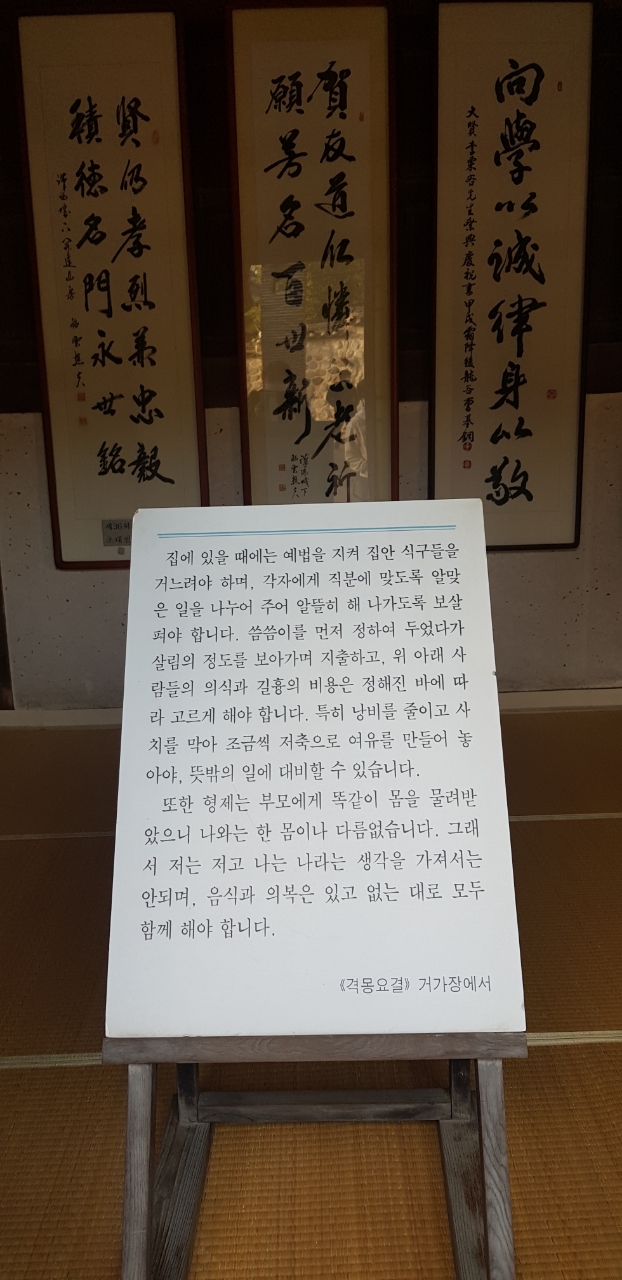 向學以誠律身以敬
大賢李栗谷先生祭典慶祝書甲戌霜降後龍谷曺基銅
賀友道仁憐公老祈
願芳名百世新
賢仍孝烈兼忠毅
積德名門永世銘
제36회
집에 있을 때에는 예법을 지켜 집안 식구들을
거느려야 하며, 각자에게 직분에 맞도록 알맞
은 일을 나누어 주어 알뜰히 해 나가도록 보살
펴야 합니다. 씀씀이를 먼저 정하여 두었다가
살림의 정도를 보아가며 지출하고, 위 아래 사
람들의 의식과 길흉의 비용은 정해진 바에 따
라 고르게 해야 합니다. 특히 낭비를 줄이고 사
치를 막아 조금씩 저축으로 여유를 만들어 놓
아야, 뜻밖의 일에 대비할 수 있습니다.
또한 형제는 부모에게 똑같이 몸을 물려받
았으니 나와는 한 몸이나 다름없습니다. 그래
서 저는 저고 나는 나라는 생각을 가져서는
안되며, 음식과 의복은 있고 없는 대로 모두
함께 해야 합니다.
《격몽요결》 거가장에서